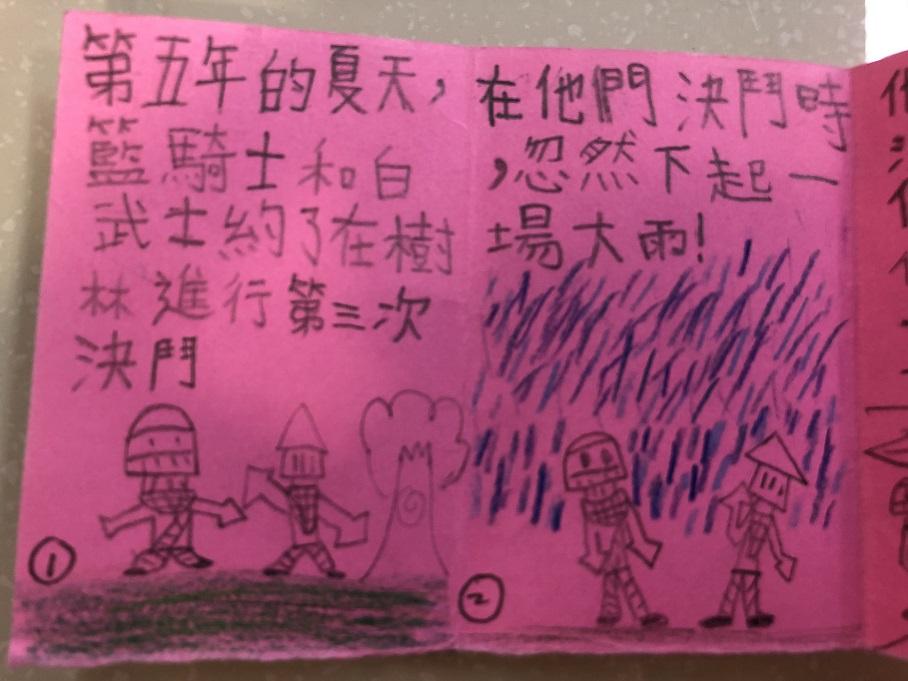 第五年的夏天，
籃騎士和白
武士約了在樹
林進行第三次
決鬥
①
在他們決鬥時
，忽然下起一
場大雨!
②